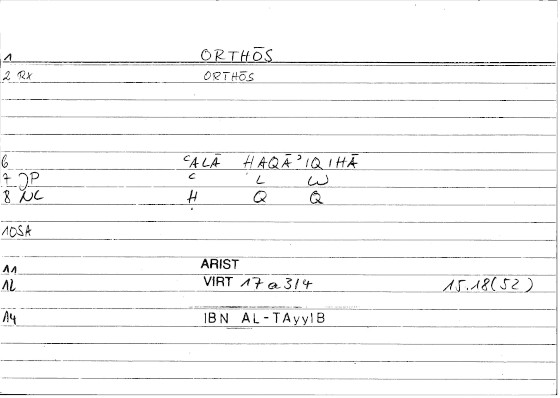 1 ORTHŌS
2 RX ORTHŌS
6 ʿALĀ ḤAQĀʾIQIHĀ
7 JP ʿ L W
8 NC Ḥ Q Q
10SA
11 ARIST
12 VIRT 17 a 3/4 15.18(52)
14 IBN AL-TAyyIB